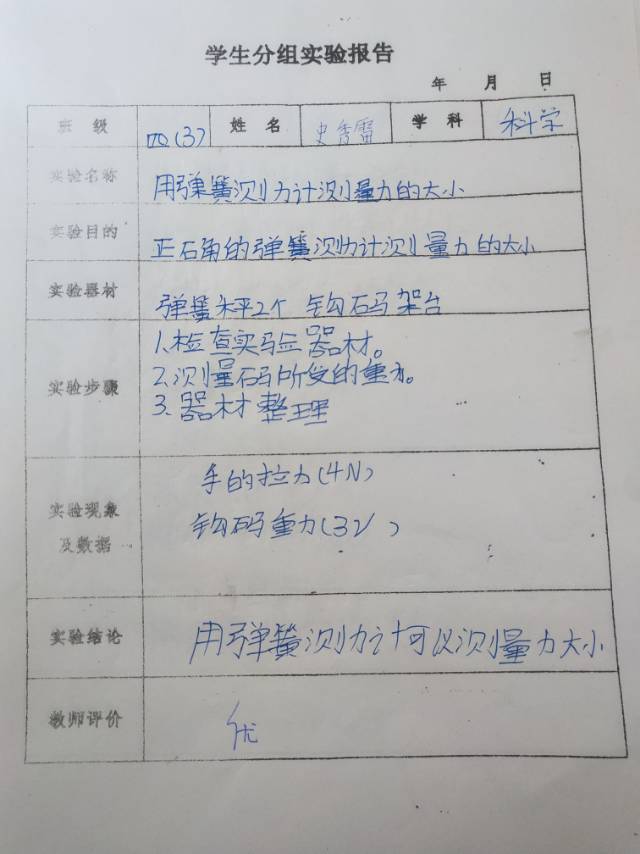 学生分组实验报告
年 月 日
班级 四(3) 姓名 史秀雷 学科 科学
实验名称 用弹簧测力计测量力的大小
实验目的 正石角的弹簧测力计测量力的大小
实验器材 弹簧秤2个 钩码 架台
实验步骤 1.检查实验器材。
2.测量码所受的重力。
3.器材整理
实验现象及数据 手的拉力(4N)
钩码重力(3N)
实验结论 用弹簧测力计可以测量力大小
教师评价 优